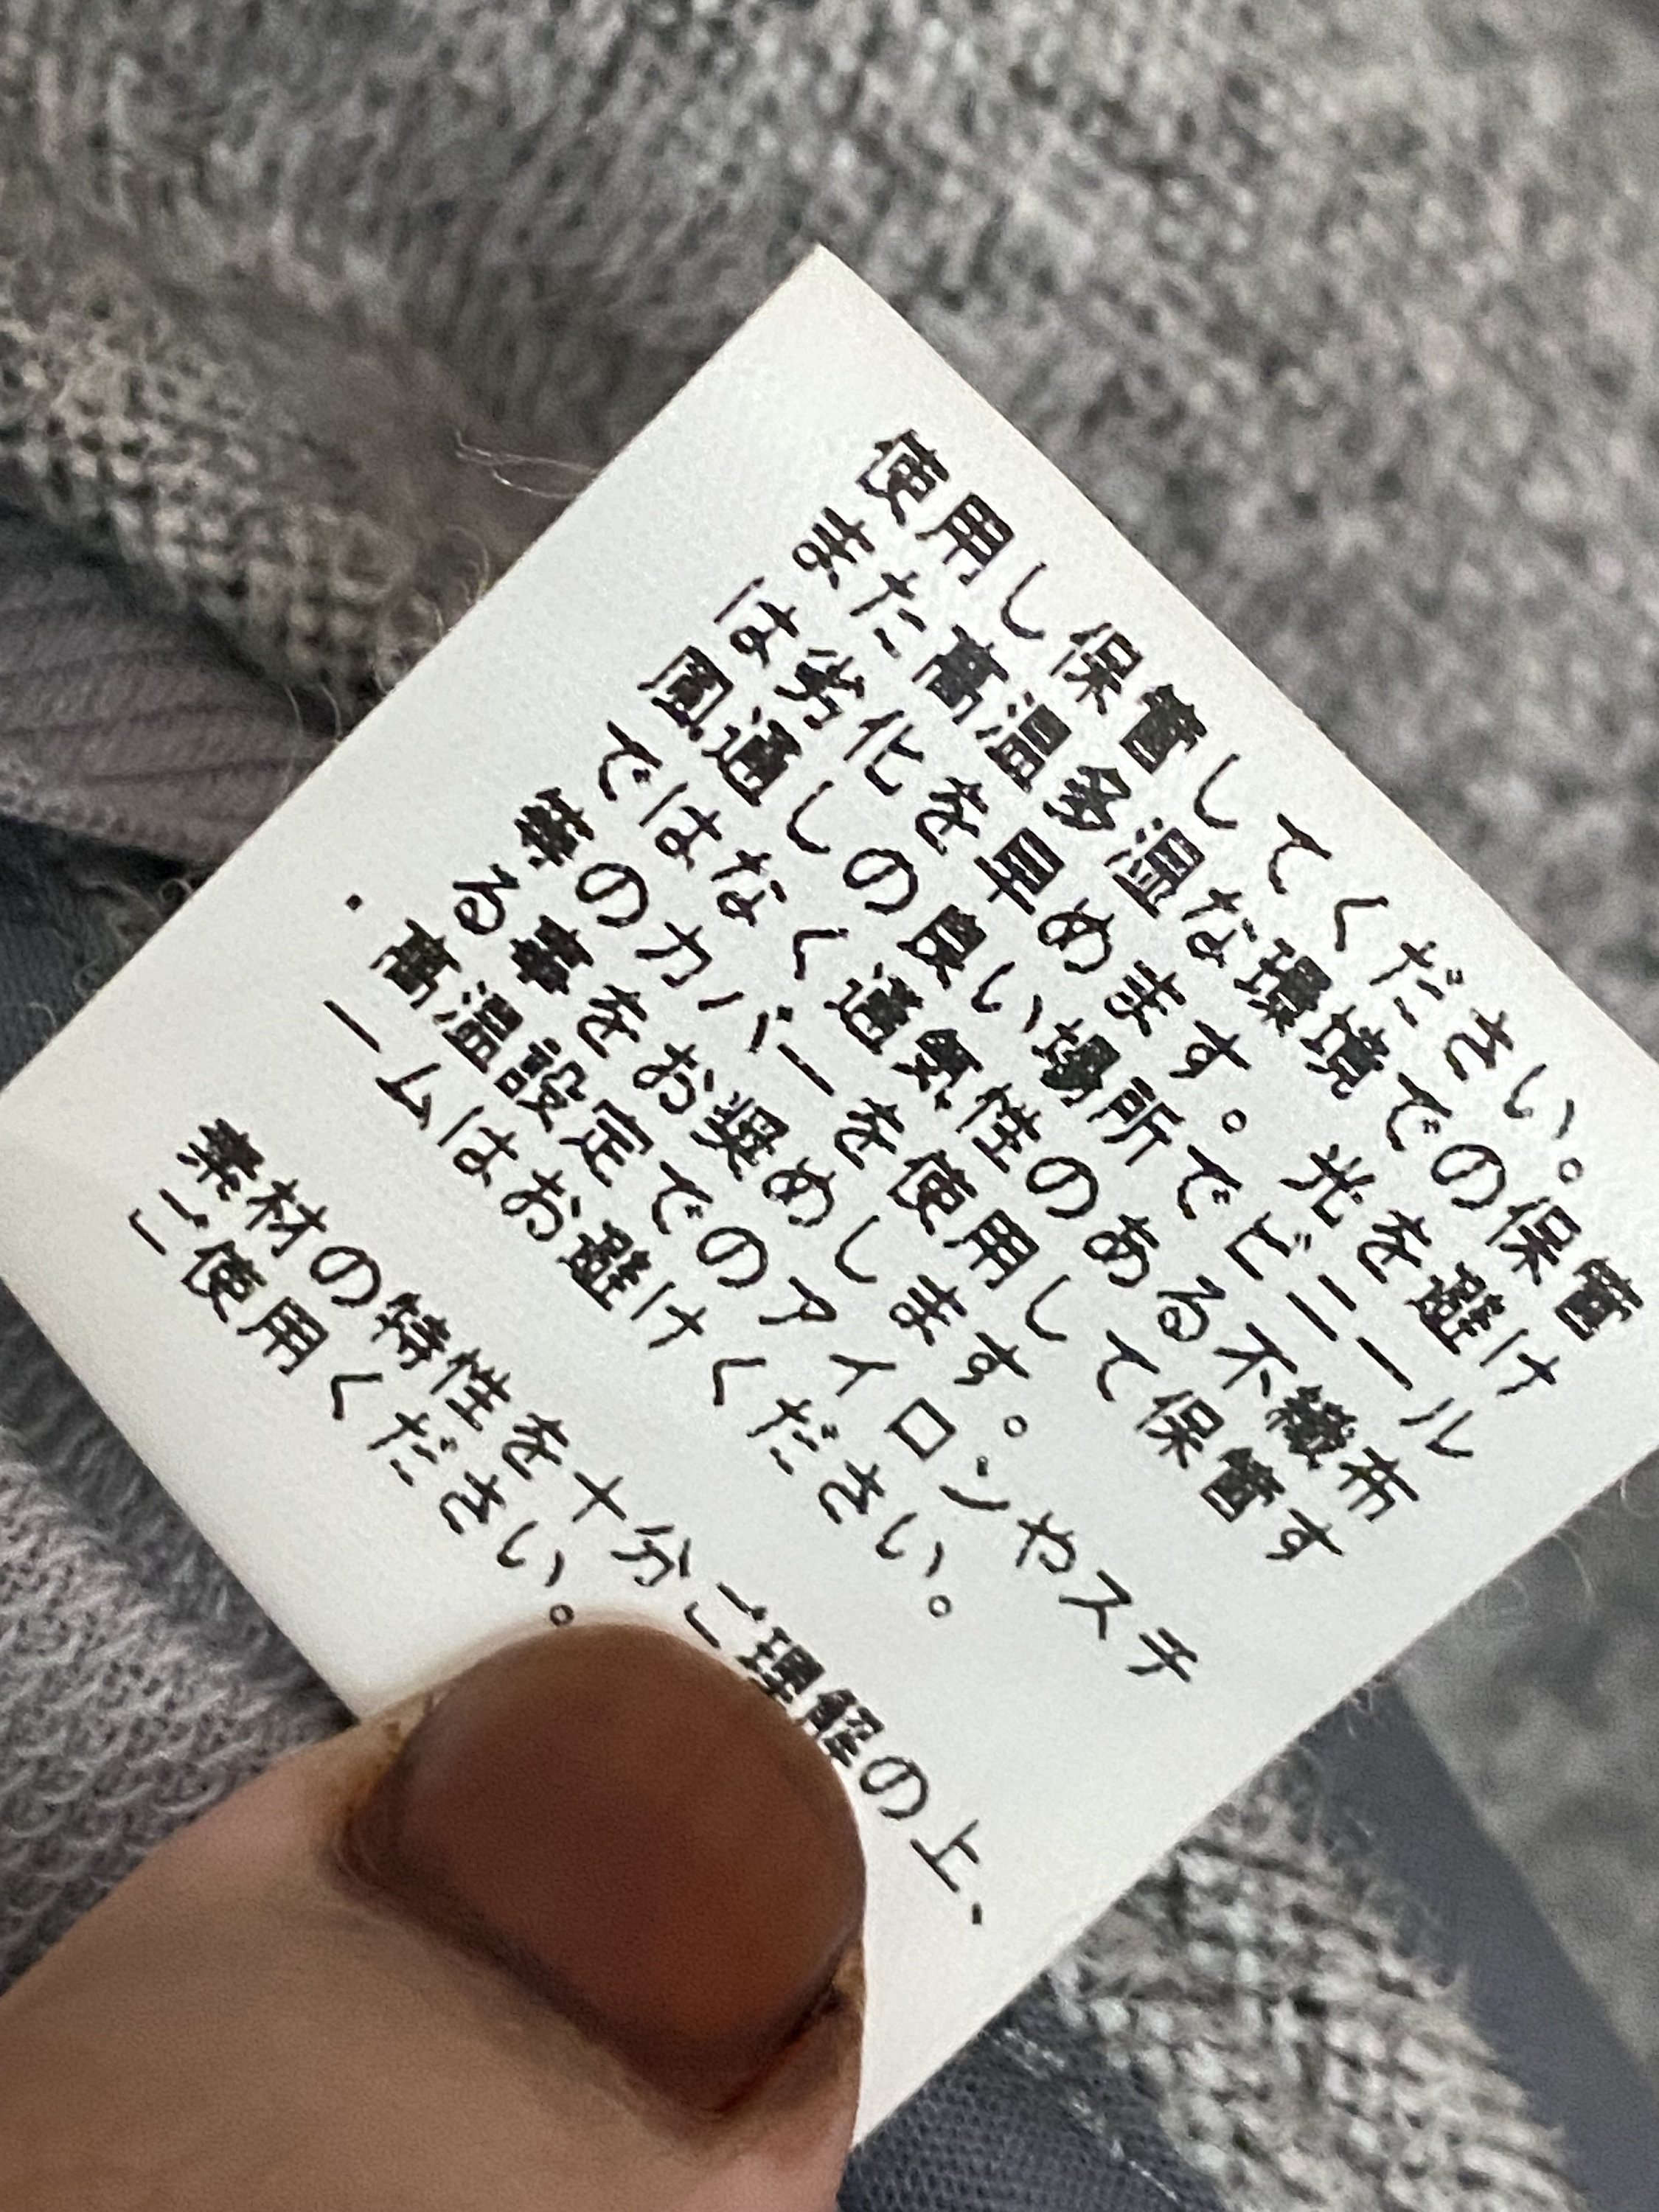 使用し保管してください。
また高温多湿な環境での保管
は劣化を早めます。光を避け
風通しの良い場所でビニール
ではなく通気性のある不織布
等のカバーを使用して保管す
る事をお奨めします。
・高温設定でのアイロンやスチ
ームはお避けください。
素材の特性を十分ご理解の上、
ご使用ください。